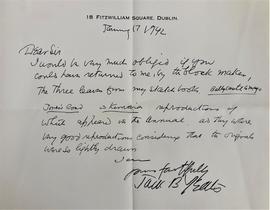 18 FITZWILLIAM SQUARE, DUBLIN.
January 17 1942
Dear Sir
I would be very much obliged if you
could have returned to me, by the block maker,
The three leaves from my sketch books
reproductions of
which appeared in the Annual as they were
very good reproductions considering that the originals
were so lightly drawn
I am
yours faithfully
Jack B Yeats